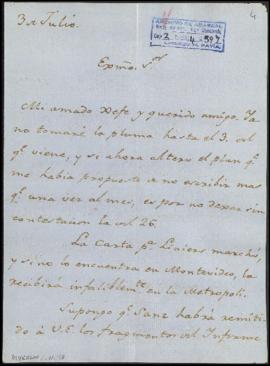 4
3 a Julio.
ARCHIVO DE
Exmo. Sor.
Mi amado Xefe y querido amigo. Ya
no tomaré la pluma hasta el 3. del
qe. viene, y si ahora altero el plan qe.
me habia propuesto de no escribir mas
qe. una vez al mes, es por no dexar sin
contestacion la del 26.
La Carta pa. Liniers marchó,
y si no lo encuentra en Montevideo, la
recibirá infaliblemte. en la Metropoli.
Supongo qe. Sanz habrá remiti-
do á V.E. los fragmentos del Informe